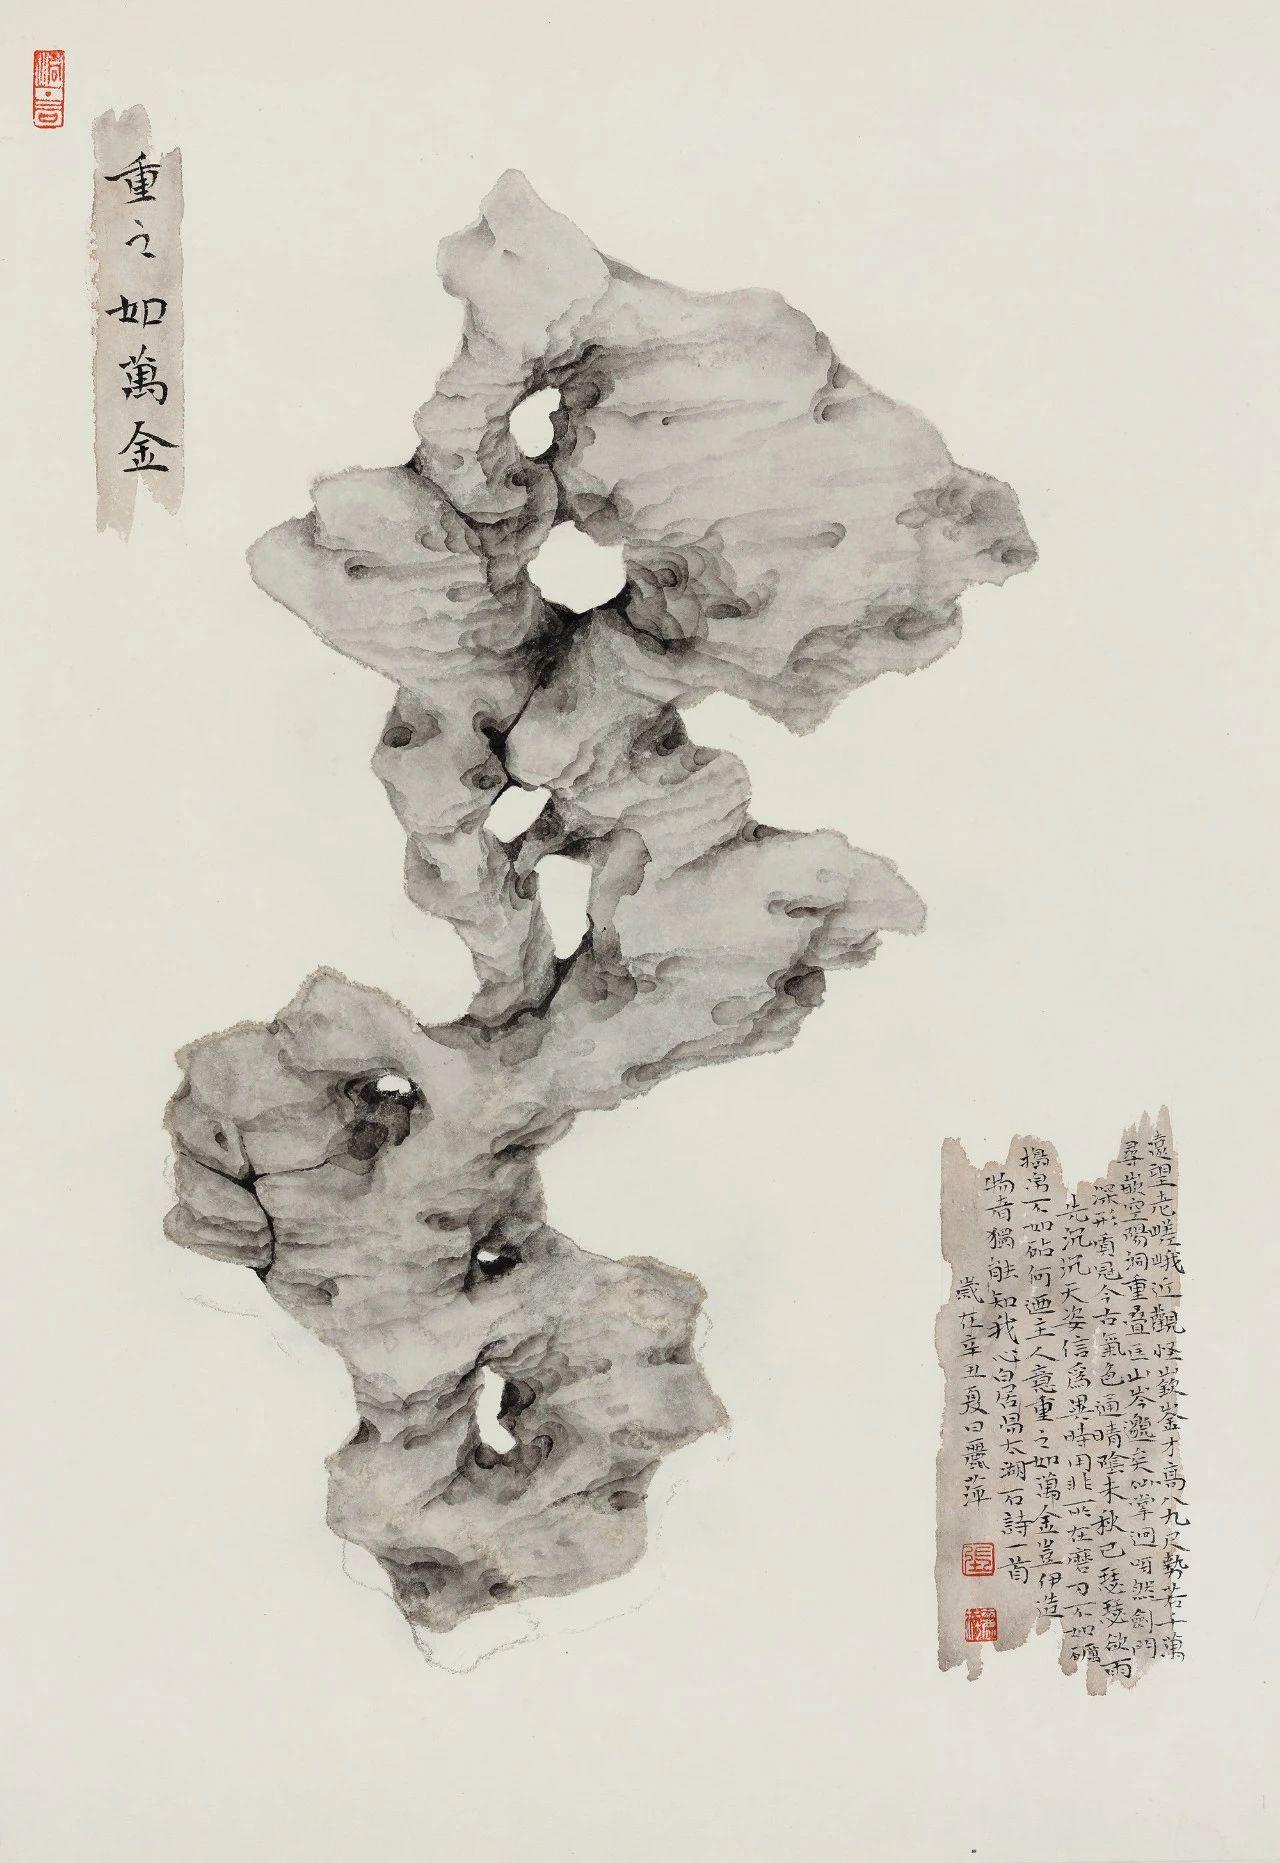 重之如萬金
遠望老嵯峨近觀怪嶔崟才高八九尺勢若千萬
尋嵌空陽洞重疊匡山岑邈矣仙掌迥呀然劍門
深形質冠今古氣色通晴陰未秋已瑟瑟欲雨
先沉沉天姿信爲異時用非所在磨刀不如礪
搗帛不如砧何迺主人意重之如萬金豈伊造
物者獨能知我心白居易太湖石詩一首
歲在辛丑夏日麗萍
張